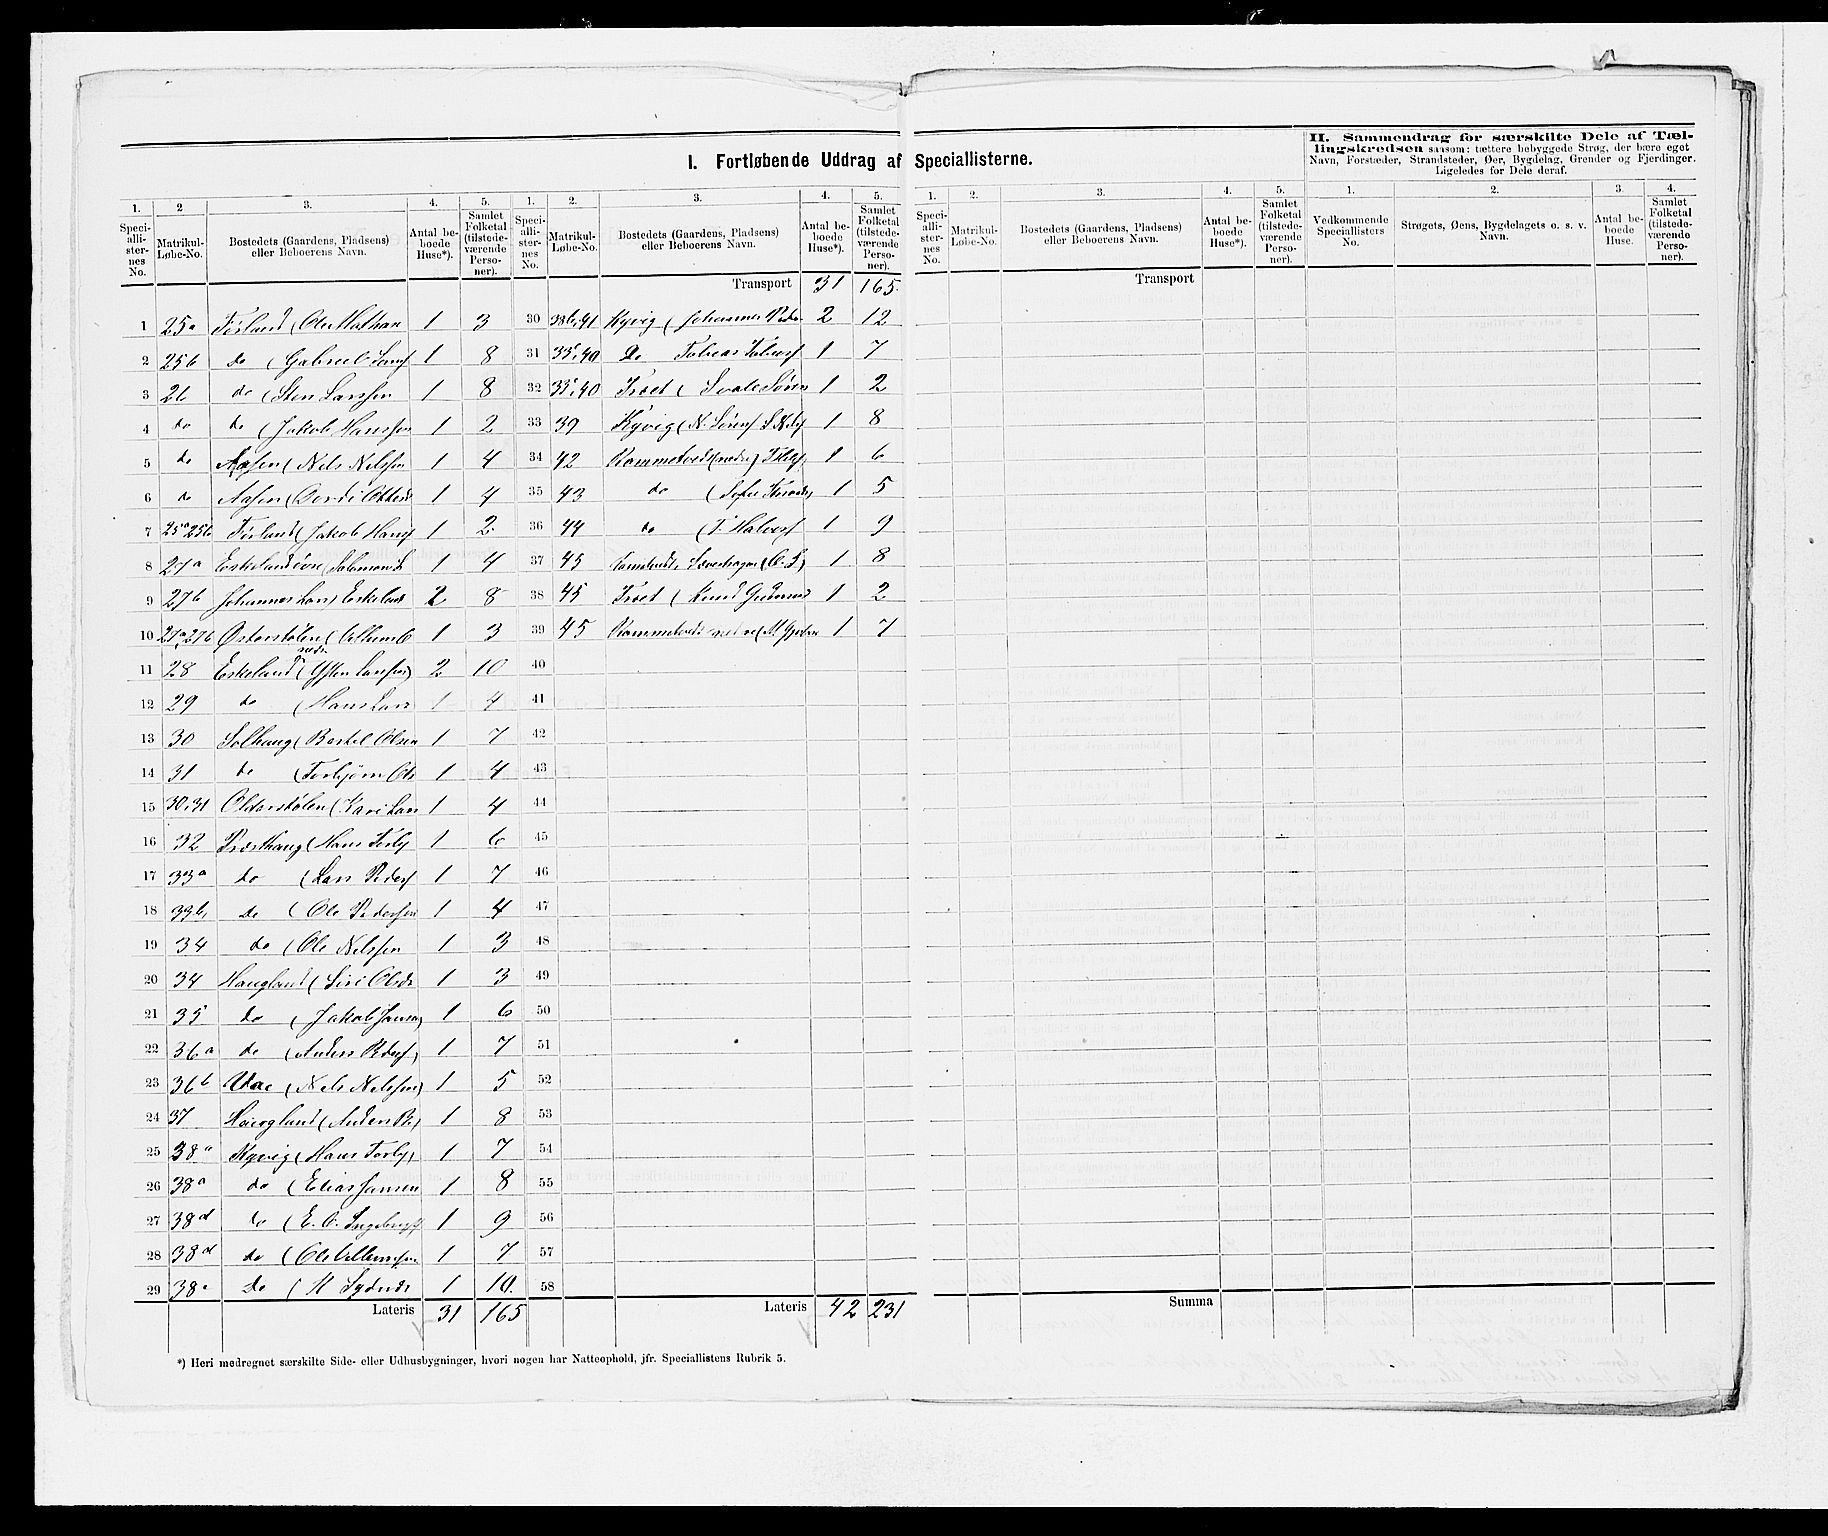 I. Fortløbende Uddrag af Speciallisterne.
II. Sammendrag for særskilte Dele af Tæl-
lingskredsen saasom: tættere bebyggede Strøg, der bære eget
Navn, Forstæder, Strandsteder, Øer, Bygdelag, Grender og Fjerdinger.
Ligeledes for Dele deraf.
1. 2 3. 4. 5. 1. 2. 3. 4. 5. 1. 2. 3. 4. 5. 1. 2. 3. 4.
Speci-alli-ster-nes No. Matrikul-Løbe-No. Bostedets (Gaardens, Pladsens) eller Beboerens Navn. Antal be-boede Huse*). Samlet Folketal (tilstede-værende Perso-ner).
Speci-alli-ster-nes No. Matrikul-Løbe-No. Bostedets (Gaardens, Pladsens) eller Beboerens Navn. Antal be-boede Huse*). Samlet Folketal (tilstede-værende Perso-ner).
Speci-alli-ster-nes No. Matrikul-Løbe-No. Bostedets (Gaardens, Pladsens) eller Beboerens Navn. Antal be-boede Huse*). Samlet Folketal (tilstede-værende Perso-ner).
Vedkommende Speciallisters No. Strøgets, Øens, Bygdelagets o. s. v. Navn. Antal be-boede Huse. Samlet Folketal (tilstedeværende Perso-ner).
Transport 31 165. Transport
1 25a Førland (Ole 1 3
2 25b do (Gabriel 1 8
3 26 do (Sten Larssen 1 8
4 do do (Jakob Hanssen 1 2
5 do Aasen (Nels Nelssen 1 4
6 do Aasen ( 1 4
7 25a 25b Førland (Jakob Hansf 1 2
8 27a Eskeland øvre (Salomon L 1 4
9 27b Johannes Lars) Eskeland 2 8
10 27a, 27b Østerstølen (Villum O 1 3
11 28 Eskeland nedr (Østen Larssen) 2 10
12 29 do (Hans Lars 1 4
13 30 Solhaug (Bertel Olsen 1 7
14 31 do (Torbjörn Ols 1 4
15 30, 31 Olderstølen (Kari Lars 1 4
16 32 Præsthaug (Hans Torbj 1 6
17 33a do (Lars Pedersf 1 7
18 33b, do (Ole Pederssen 1 4
19 34 do (Ole Nelssen 1 3
20 34 Haugland (Siri Olsdr 1 3
21 35 do (Jakob Jansen) 1 6
22 36a do (Anders Pedersf) 1 7
23 36b (Nels Nelssen) 1 5
24 37 Haugland (Anders P.) 1 8
25 38a Kyvig (Hans Torbj) 1 7
26 38a do (Elias Jansen 1 8
27 38d do (E. O. Ingebregtsf 1 9
28 38d do (Ole Villumssen 1 7
29 38 Do ( 1 10.
Lateris 31 165
30 38b, 41 Kyvig (Johannes Peder 2 12
31 40 Do Tobias 1 7
32 40 Træet (Svale Søren 1 2
33 39 Kyvig (N. Sørens 1 8
34 42 Rammetvedt (nedre) 1 6
35 43 do (Sofie 1 5
36 44 do (T. Halvorsf 1 9
37 45 1 8
38 45 Træet (Knud Gudmund 1 2
39 45 Rammetvedt nedre ( 1 7
40
41
42
43
44
45
46
47
48
49
50
51
52
53
54
55
56
57
58
Lateris 42 231
Summa
*) Heri medregnet særskilte Side- eller Udhusbygninger, hvori nogen har Natteophold, jfr. Speciallistens Rubrik 5.